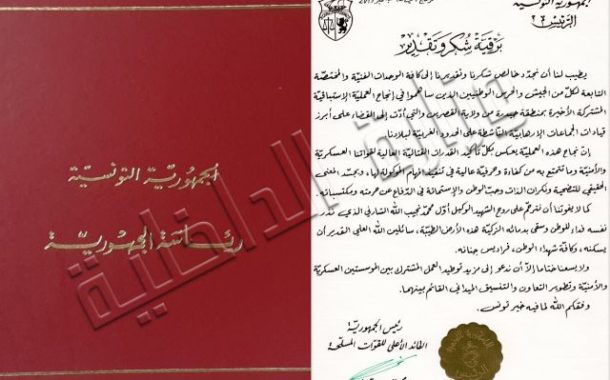 الجمهورية التونسية
رئاسة الجمهورية
الجمهورية التونسية
الرئيس
برقية شكر وتقدير
يطيب لنا أن نجدّد خالص شكرنا وتقديرنا إلى كافة الوحدات الفنية والمختصّة
التابعة لكلّ من الجيش والحرس الوطنيين الذين ساهموا في إنجاح العملية الإستباقية
المشتركة الأخيرة بمنطقة حيدرة من ولاية القصرين والتي أدّت إلى القضاء على أبرز
قيادات الجماعات الإرهابية الناشطة على الحدود الغربية لبلادنا.
إنّ نجاح هذه العمليّة يعكس بكلّ تأكيد القدرات القتالية العالية لقواتنا العسكريّة
والأمنيّة وما تتمتّع به من كفاءة وحرفية عالية في تنفيذ المهام الموكولة لها، ويجسّد المعنى
الحقيقي للتضحية ونكران الذات وحبّ الوطن والإستماتة في الدّفاع عن حرمته ومكتسباته.
كما لا يفوتنا أن نترحّم على روح الشهيد الوكيل أوّل محمد نجيب الله الشارني الذي نذر
نفسه فداء للوطن وسقى بدمائه الزكيّة هذه الأرض الطيّبة، سائلين الله العلي القدير أن
يسكنه، وكافة شهداء الوطن، فراديس جنانه.
ولا يسعنا ختاما إلاّ أن ندعو إلى مزيد توطيد العمل المشترك بين المؤسستين العسكريّة
والأمنيّة وتطوير التعاون والتنسيق الميداني القائم بينهما.
وفقكم الله لما فيه خير تونس.
رئيس الجمهورية
القائد الأعلى للقوات المسلحة
وزارة الداخلية